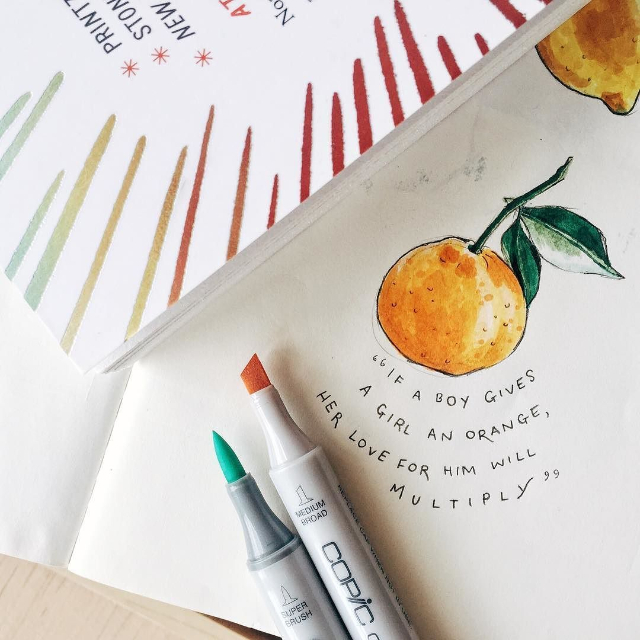 PRINTZ
STON
NEW
AT
No
"IF A BOY GIVES
A GIRL AN ORANGE,
HER LOVE FOR HIM WILL
MULTIPLY"
MEDIUM
BROAD
COPIC
SUPER
BRUSH